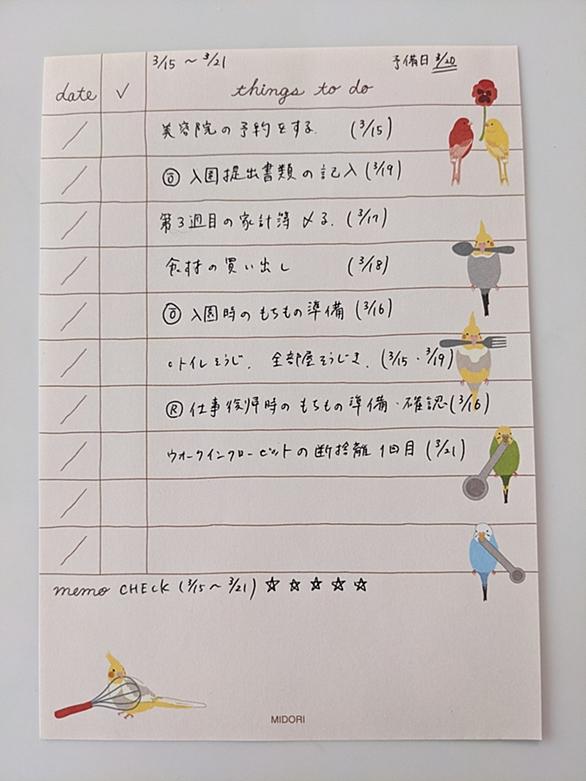 3/15 ～ 3/21 予備日 3/20
date ✓ things to do
美容院の予約をする. (3/15)
入園提出書類の記入 (3/19)
第3週目の家計簿〆る. (3/17)
食材の買い出し (3/18)
入園時のもちもの準備 (3/16)
トイレそうじ. 全部屋そうじき. (3/15・3/19)
Ⓡ 仕事復帰時のもちもの準備・確認 (3/16)
ウォークインクローゼットの断捨離 1回目 (3/21)
memo CHECK (3/15 ～ 3/21) ☆ ☆ ☆ ☆ ☆
MIDORI